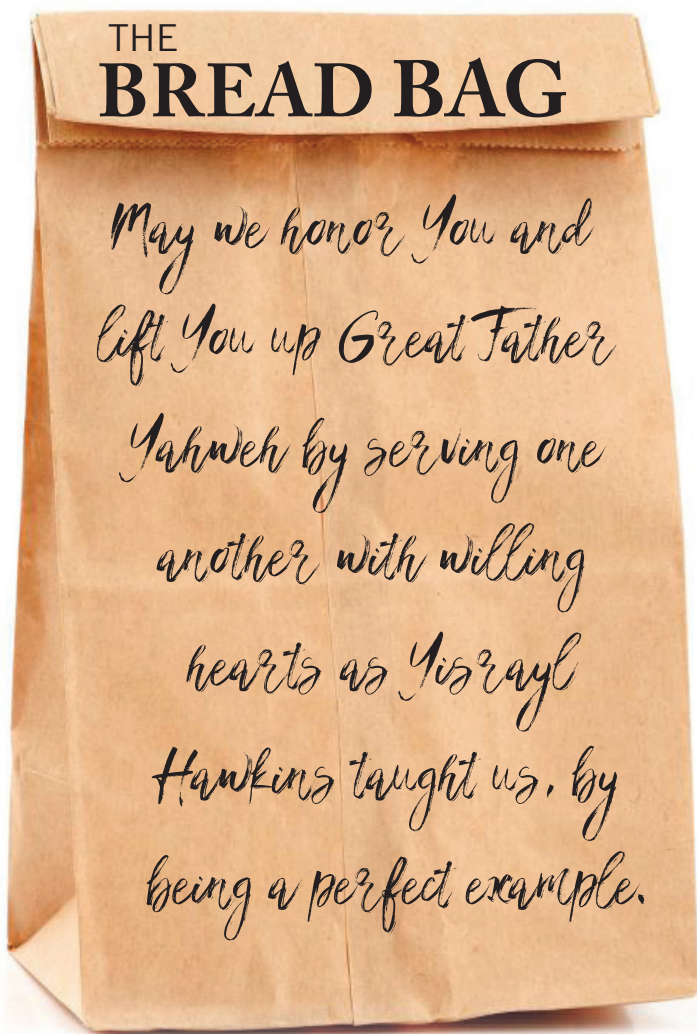 THE
BREAD BAG
May we honor You and
lift You up Great Father
Yahweh by serving one
another with willing
hearts as Yisrayl
Hawkins taught us, by
being a perfect example.